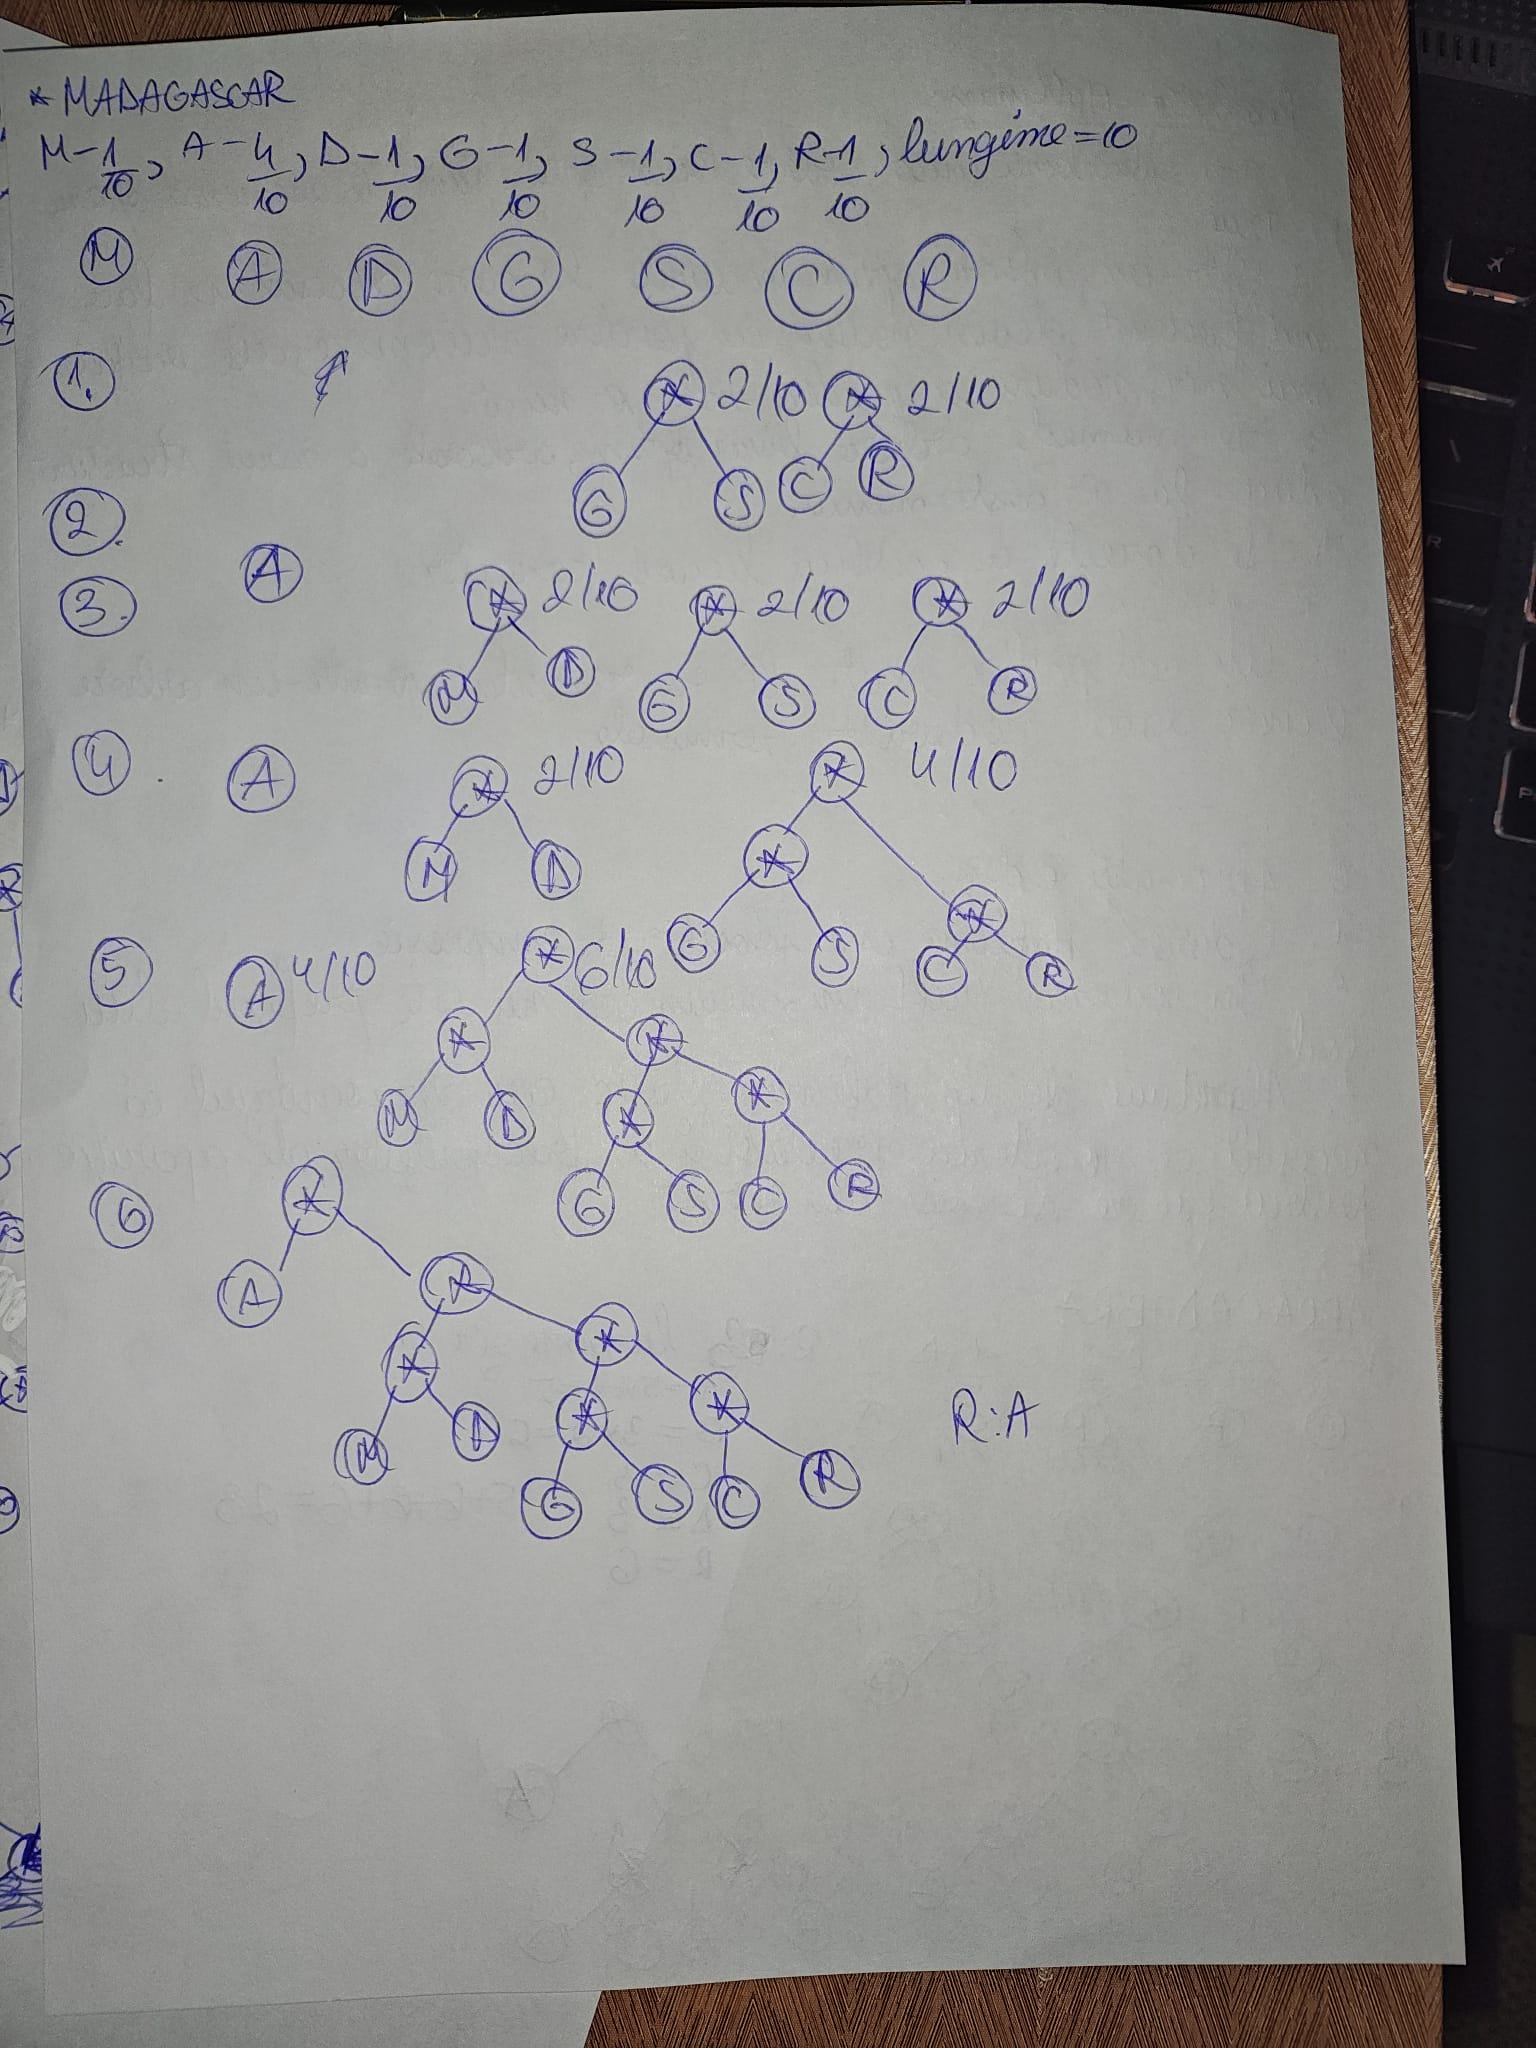 * MADAGASCAR
M-1/10, A-4/10, D-1/10, G-1/10, S-1/10, C-1/10, R-1/10, lungime=10
M A D G S C R
1.
* 2/10 * 2/10
G S C R
2.
3. A * 2/10 * 2/10 * 2/10
M D G S C R
4. A * 2/10 * 4/10
M D *
G S * C R
5 A 4/10 * 6/10
* *
M D * *
G S C R
6 *
A *
* *
M D * *
G S C R
R:A